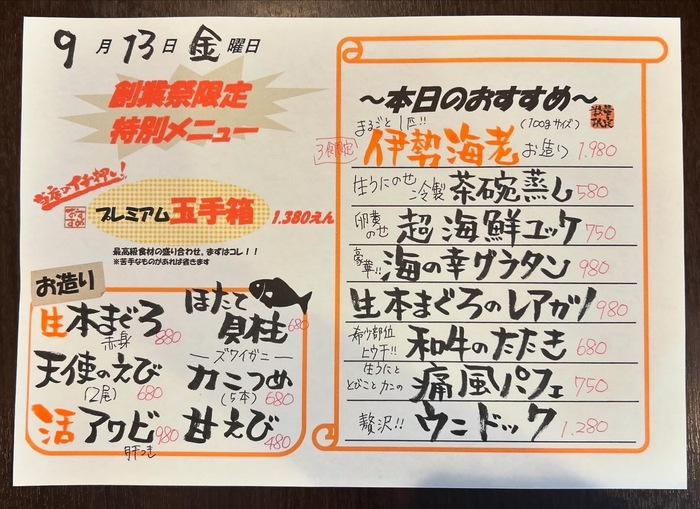 9月13日金曜日
創業祭限定
特別メニュー
当店のイチ押し!
おすすめ
プレミアム玉手箱 1.380えん
最高級食材の盛り合わせ、まずはコレ！！
※苦手なものがあれば省きます
お造り
生本まぐろ 880
赤身
天使のえび
(2尾) 680
活アワビ 980
肝つき
ほたて
貝柱 680
ズワイガニ
カニつめ
(5本) 680
甘えび 480
～本日のおすすめ～
まるごと1匹!! (100gサイズ)
3食限定 伊勢海老 お造り 1.980
生うにのせ 冷製 茶碗蒸し 580
卵黄のせ 超海鮮ユッケ 750
豪華!! 海の幸グラタン 980
生本まぐろのレアカツ 980
希少部位 ヒウチ!! 和牛のたたき 680
生うにと
とびことカニの 痛風パフェ 750
贅沢!! ウニドック 1.280